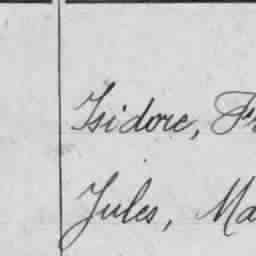 Isidore,
Jules, Ma